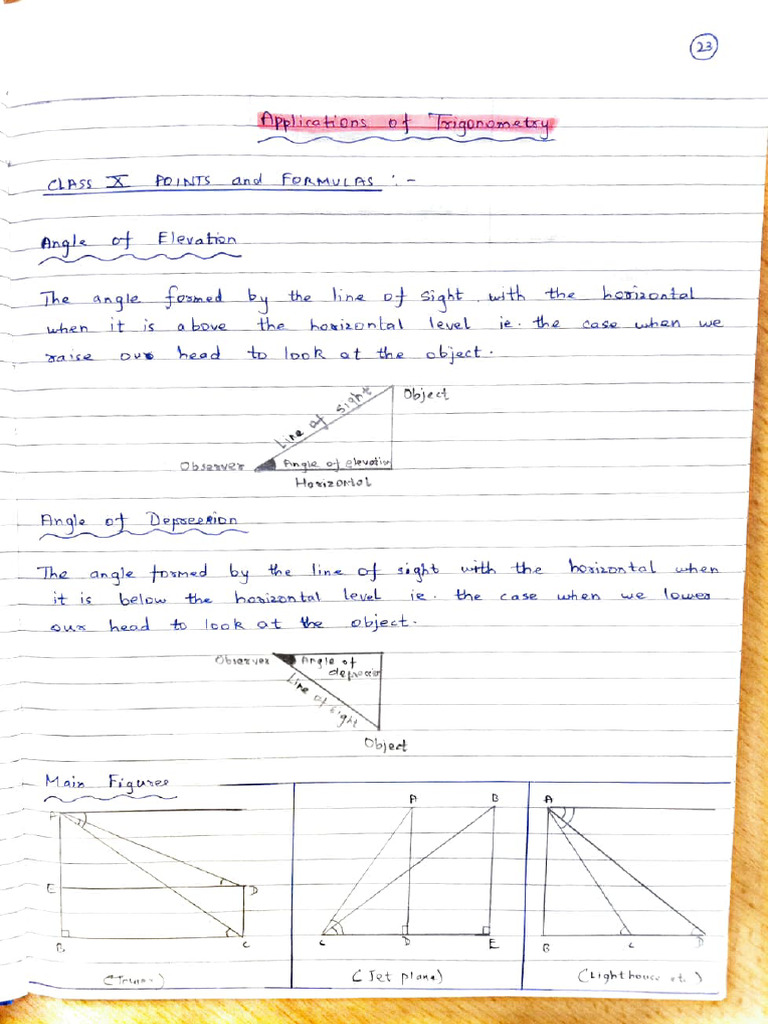 23
Applications of Trigonometry
CLASS X POINTS and FORMULAS :-
Angle of Elevation
The angle formed by the line of sight with the horizontal
when it is above the horizontal level ie. the case when we
raise our head to look at the object.
Object
Line of sight
Observer
Angle of elevation
Horizontal
Angle of Depression
The angle formed by the line of sight with the horizontal when
it is below the horizontal level ie. the case when we lower
our head to look at the object.
Observer
Angle of
depression
Line of sight
Object
Main Figures
A B A
E D
B C C D E B C D
(Jet plane)
(Lighthouse et.)